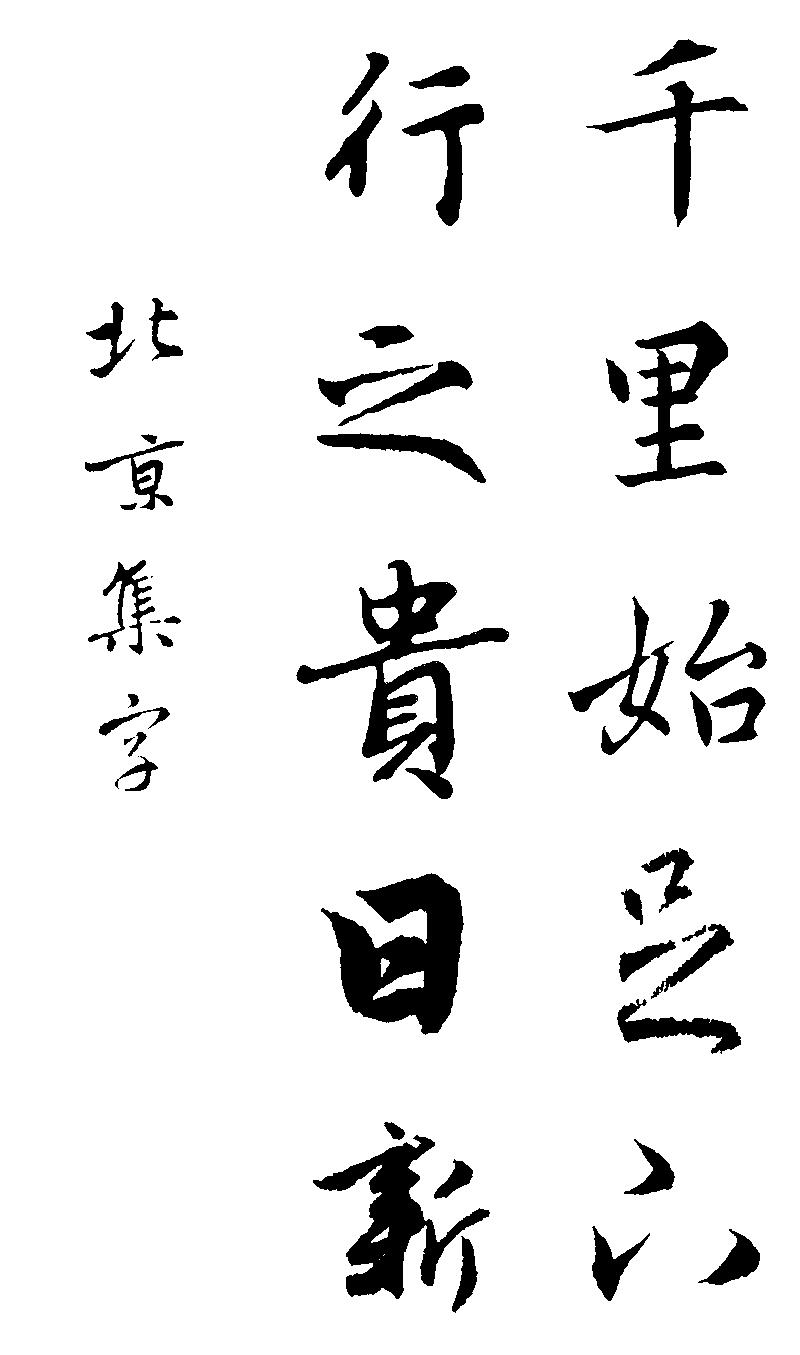 千里始足下
行之貴日新
北京集字